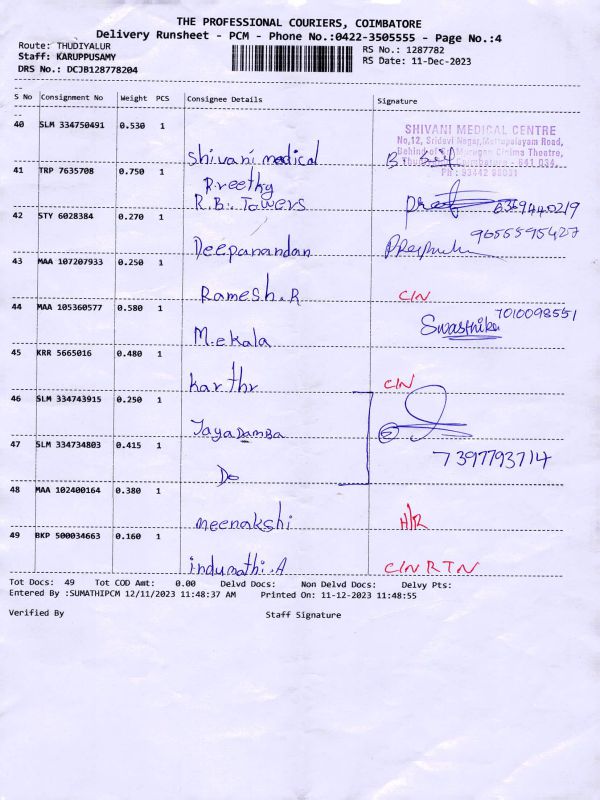 THE PROFESSIONAL COURIERS, COIMBATORE
Delivery Runsheet - PCM - Phone No.:0422-3505555 - Page No.:4
Route: THUDIYALUR
RS No.: 1287782
Staff: KARUPPUSAMY
RS Date: 11-Dec-2023
DRS No.: DCJB128778204
S No Consignment No Weight PCS Consignee Details Signature
40 SLM 334750491 0.530 1
SHIVANI MEDICAL CENTRE
No,12, Sridevi Nagar, Mettupalayam Road,
Behind of Sri Murugan Cinema Theatre,
Coimbatore - 641 034.
Ph : 93442 98031
Shivani medical
41 TRP 7635708 0.750 1
Preethy
R.B. Towers
42 STY 6028384 0.270 1
Deepanandan 9655595427
43 MAA 107207933 0.250 1
Ramesh.R CIN
44 MAA 105360577 0.580 1
7010098551
Mekala Swasthika
45 KRR 5665016 0.480 1
Karthi CIN
46 SLM 334743915 0.250 1
Jayadamba
47 SLM 334734803 0.415 1
7397793714
Do
48 MAA 102400164 0.380 1
meenakshi H/R
49 BKP 500034663 0.160 1
indumathi.A CIN RTN
Tot Docs: 49 Tot COD Amt: 0.00 Delvd Docs: Non Delvd Docs: Delvy Pts:
Entered By :SUMATHIPCM 12/11/2023 11:48:37 AM Printed On: 11-12-2023 11:48:55
Verified By Staff Signature